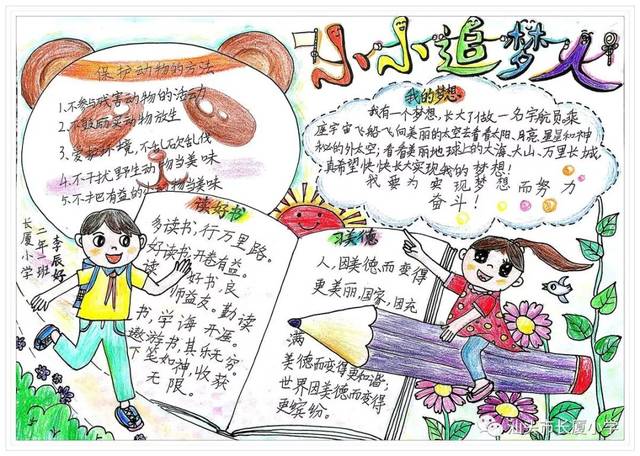 小小追梦人
保护动物的方法
1.不参与戕害动物的活动
2.不贩卖动物放生
3.爱护环境,不乱砍乱伐
4.不干扰野生动物当美味
5.不才巴有益的动物当美味
我的梦想
我有一个梦想,长大了做一名宇航员,乘
座宇宙飞船飞向美丽的太空去看看太阳、月亮、星星和神
秘的外太空;看看美丽地球上的大海、大山、万里长城
,真希望快快长大实现我的梦想!
我要为实现梦想而努力
奋斗!
长厦小学
二年二班
李辰好
读好书
多读书,行万里路。
好读书,开卷有益。
读好书,良
师益友。勤读
书,学海开涯。
遨游书,其乐无穷
下笔如神,收获
无限。
习美德
人,因美德而变得
更美丽,国家,因充
满
美德而变得更和谐;
世界因美德而变得
更缤纷。
汕头市长厦小学